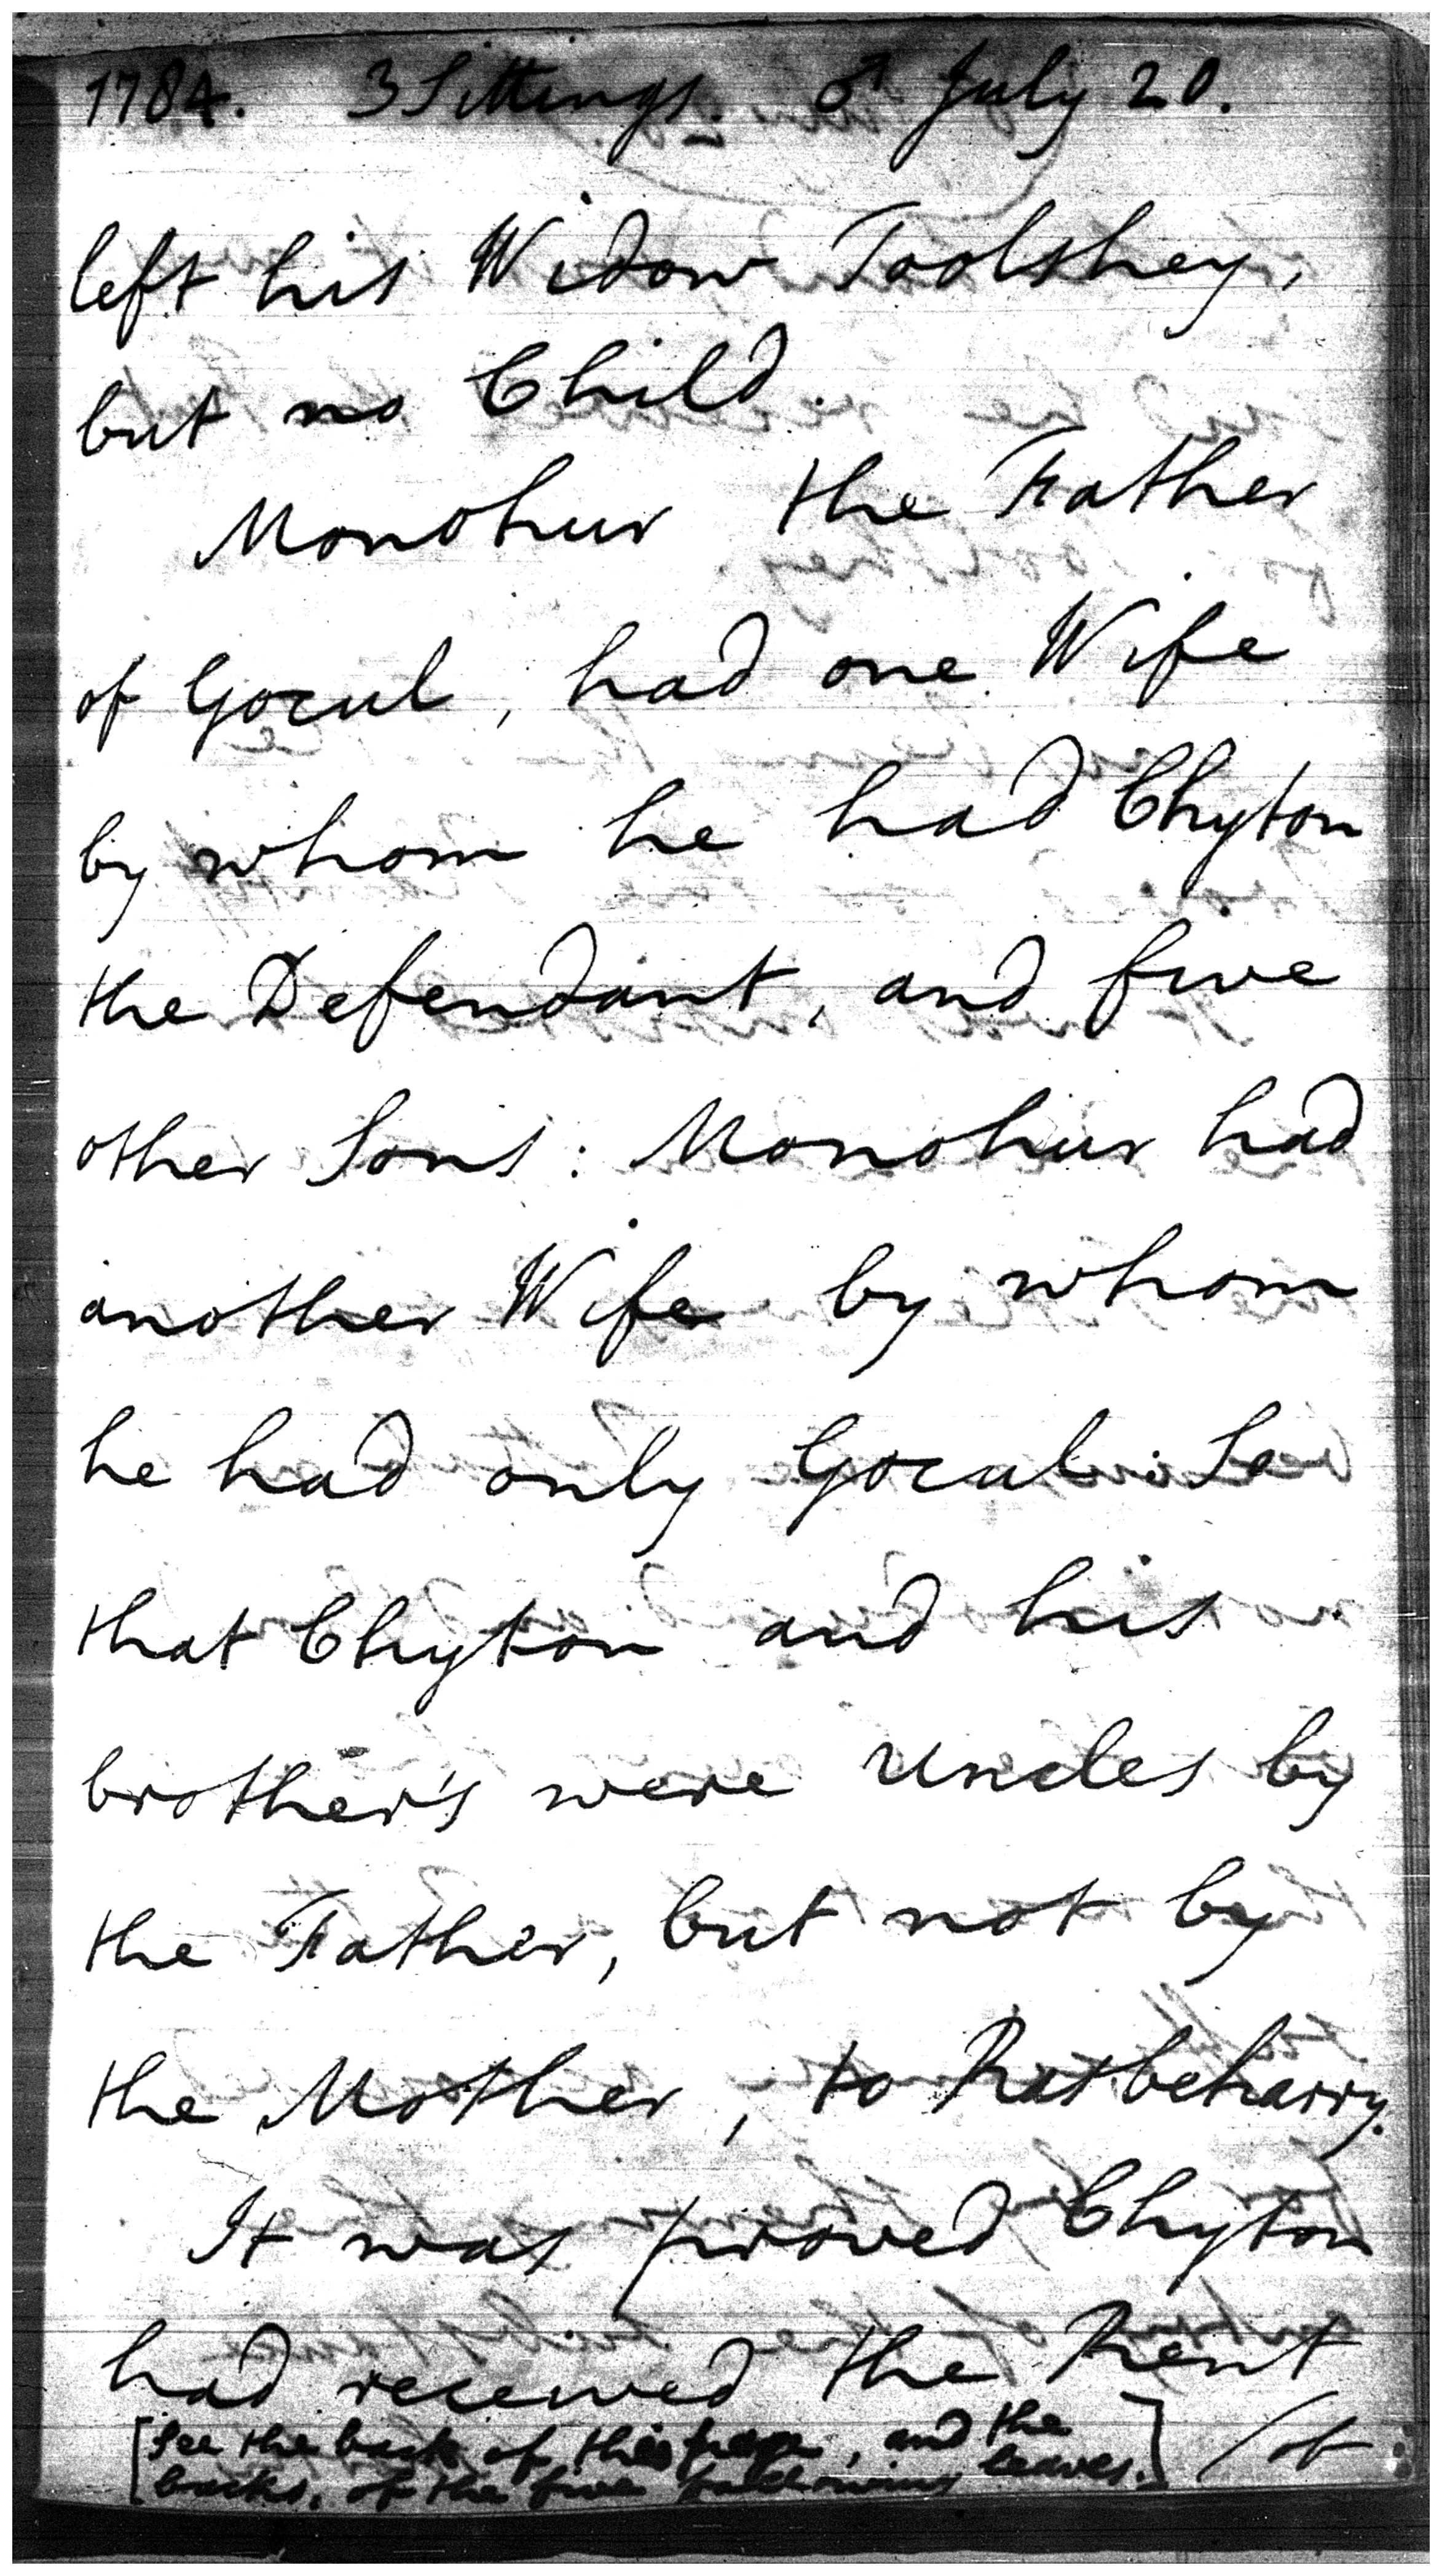 1784. 3 Sittings. ♂ July 20.
left his Widow Toolshey,
but no Child.
Monohur the Father
of Gocul, had one Wife
by whom he had Chyton
the Defendant, and five
other Sons: Monohur had
another Wife by whom
he had only Gocul: So
that Chyton and his
brother's were Uncles by
the Father, but not by
the Mother, to Rasbeharry.
It was proved Chyton
had received the Rent
[See the back of this page, and the
backs, of the five following leaves.] /of: